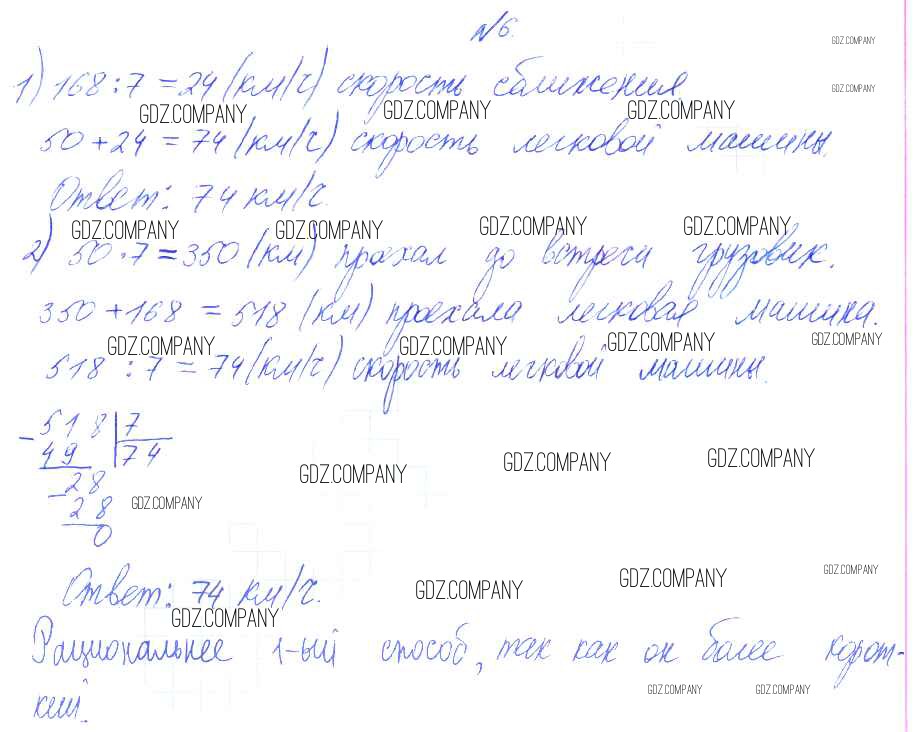 №6.
GDZ.COMPANY
1) 168 : 7 = 24 (км/ч) скорость сближения
GDZ.COMPANY
GDZ.COMPANY GDZ.COMPANY GDZ.COMPANY
50 + 24 = 74 (км/ч) скорость легковой машины.
Ответ: 74 км/ч.
GDZ.COMPANY GDZ.COMPANY GDZ.COMPANY GDZ.COMPANY
2) 50 · 7 = 350 (км) проехал до встречи грузовик.
350 + 168 = 518 (км) проехала легковая машина.
GDZ.COMPANY GDZ.COMPANY GDZ.COMPANY GDZ.COMPANY
518 : 7 = 74 (км/ч) скорость легковой машины.
- 518 | 7
49 | 74
GDZ.COMPANY GDZ.COMPANY GDZ.COMPANY
- 28
28 GDZ.COMPANY
0
GDZ.COMPANY
Ответ: 74 км/ч. GDZ.COMPANY GDZ.COMPANY
GDZ.COMPANY
Рациональнее 1-ый способ, так как он более корот-
GDZ.COMPANY GDZ.COMPANY
кий.